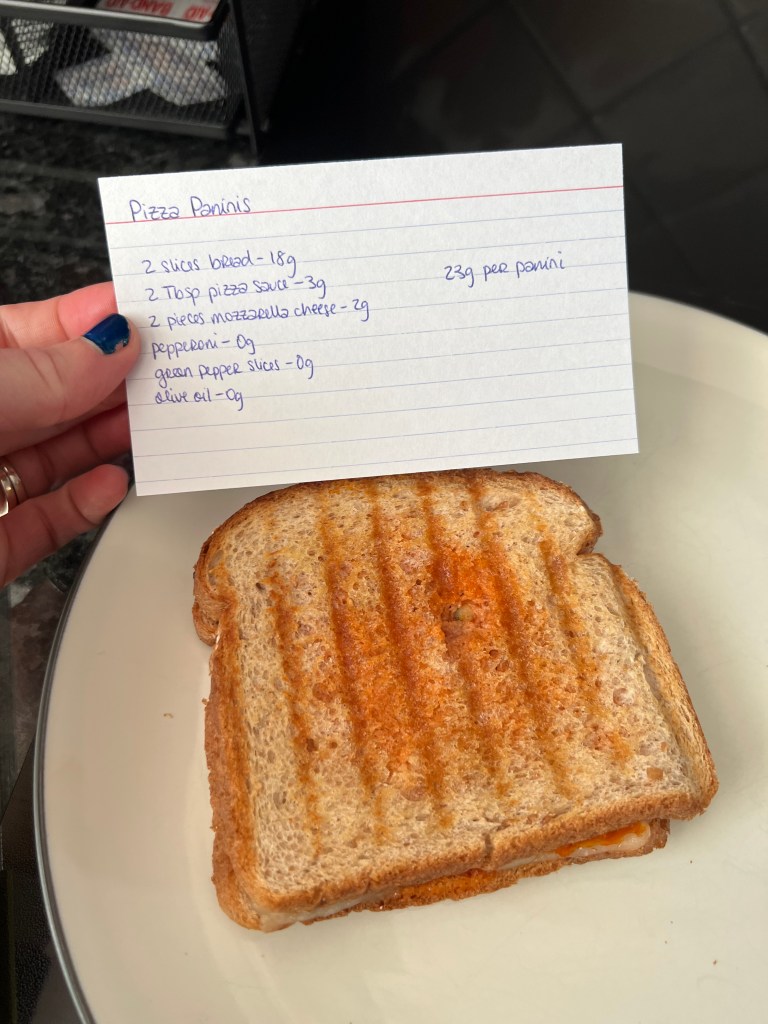 BAND-AID
Pizza Paninis
2 slices bread - 18g
2 Tbsp pizza sauce - 3g
2 pieces mozzarella cheese - 2g
pepperoni - 0g
green pepper slices - 0g
olive oil - 0g
23g per panini